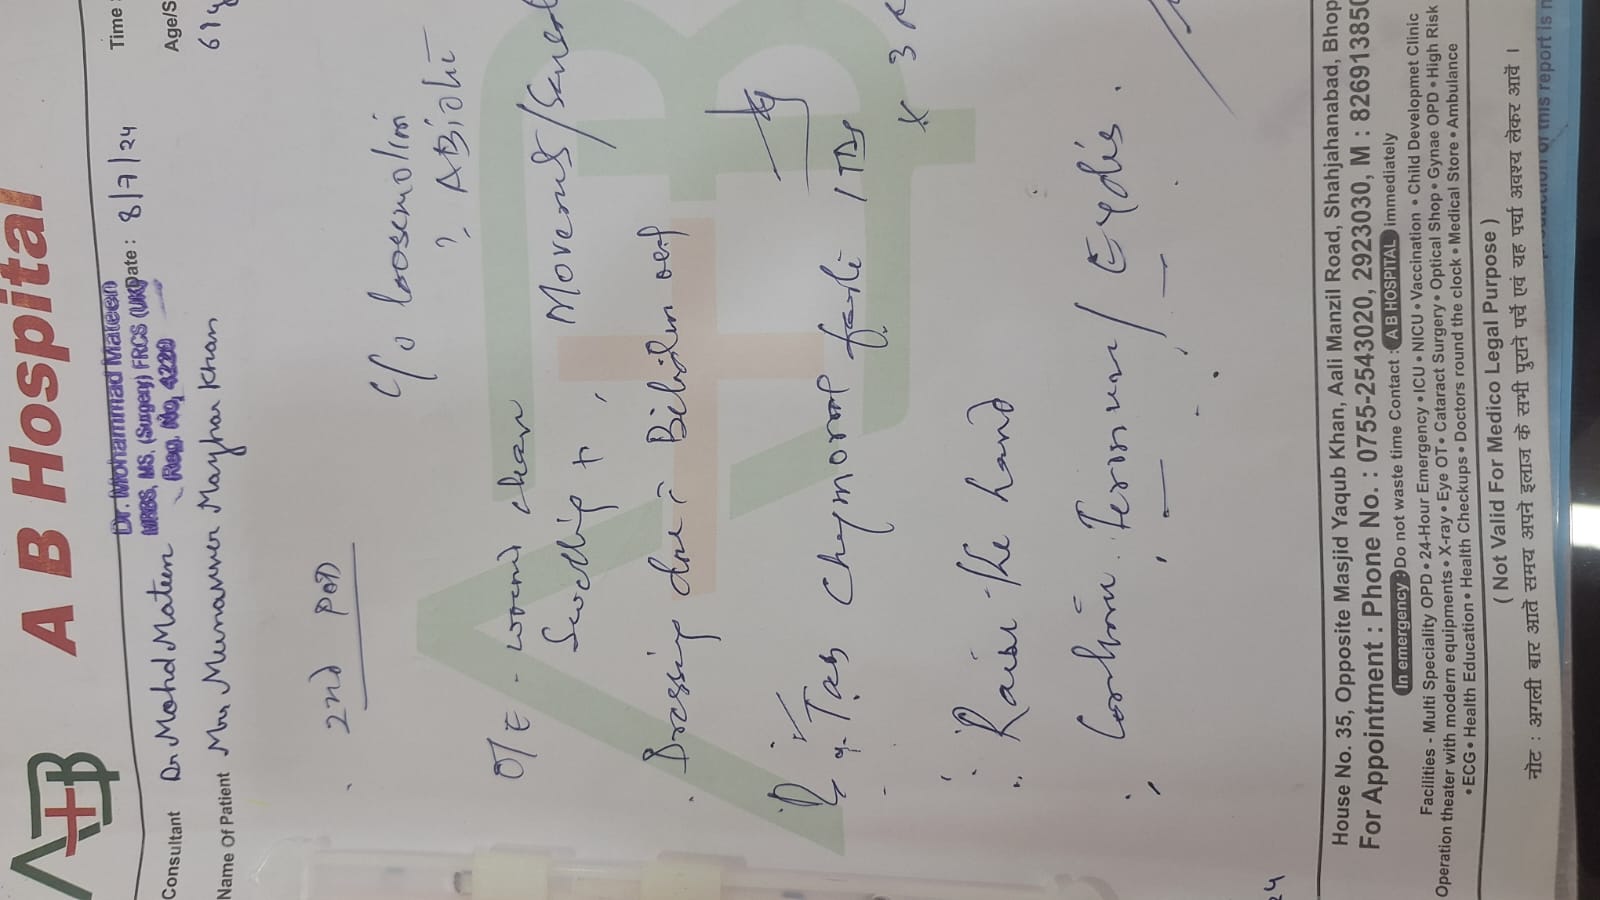 A B Hospital
Dr. Mohammad Mateen
MBBS, MS, (Surgery) FRCS (UK)
Reg. No. 4220
Time :
Consultant Dr Mohd Mateen Date : 8/7/24
Age/S
Name Of Patient Munawwer Mazhar Khan 61y
2nd POD
C/o loosemotion
? ABiotic
O/E - wound clean
Swelling +, Movement/
Dressing done
Rx Tab Chymoral forte 1 TDS
x 3
Raise the hand
/
24
House No. 35, Opposite Masjid Yaqub Khan, Aali Manzil Road, Shahjahanabad, Bhop
For Appointment : Phone No. : 0755-2543020, 2923030, M : 826913850
In emergency : Do not waste time Contact : A B HOSPITAL Immediately
Facilities - Multi Speciality OPD • 24-Hour Emergency • ICU • NICU • Vaccination • Child Developmet Clinic
Operation theater with modern equipments • X-ray • Eye OT • Cataract Surgery • Optical Shop • Gynae OPD • High Risk
• ECG • Health Education • Health Checkups • Doctors round the clock • Medical Store • Ambulance
( Not Valid For Medico Legal Purpose )
नोट : अगली बार आते समय अपने इलाज के सभी पुराने पर्चे एवं यह पर्चा अवश्य लेकर आवें ।
this report is n